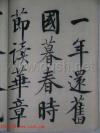 一年還舊
國暮春時
節读華章